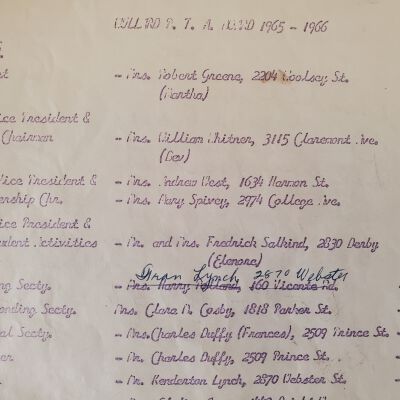 P. T. A. 1965 - 1966
- Mrs. Robert Greene, 2204 Woolsey St.
(Martha)
ice President &
Chairman - Mrs. William Whitner, 3115 Claremont Ave.
(Bev)
Vice President & - Mrs. Andrew West, 1634 Harmon St.
ership Chr. - Mrs. Mary Spivey, 2974 College Ave.
ice President &
udent Activities - Mr. and Mrs. Fredrick Salkind, 2830 Derby
(Elenore)
Lynch, 2870 Webster
ng Secty. - Mrs. Harry 160 Vicente Rd.
onding Secty. Mrs. Clara M. Cosby, 1818 Parker St.
al Secty. - Mrs. Charles Duffy (Frances), 2509 Prince St.
er - Mr. Charles Duffy, 2509 Prince St.
- Mr. Kenderton Lynch, 2870 Webster St.